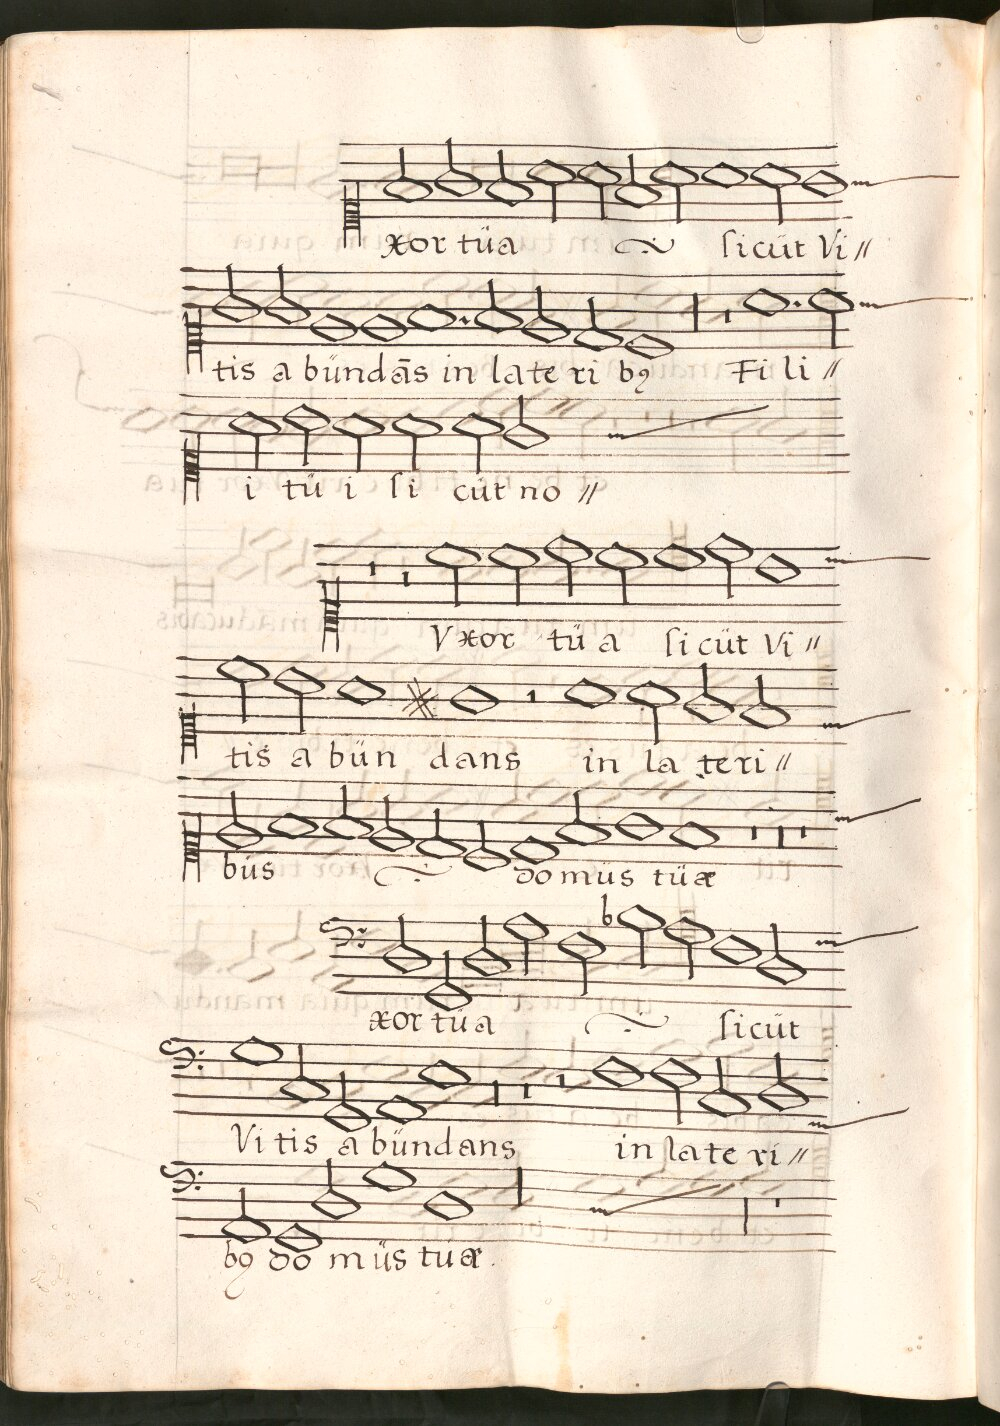 xor tüa sicüt Vi//
tis a bündās in late ri bꝯ Fi li //
i tü i si cüt no //
Vxor tü a sicüt Vi //
tis a bün dans in la teri //
büs domüs tüæ
b
xor tüa sicüt
Vi tis a bündans in late ri //
bꝯ do müs tuæ.